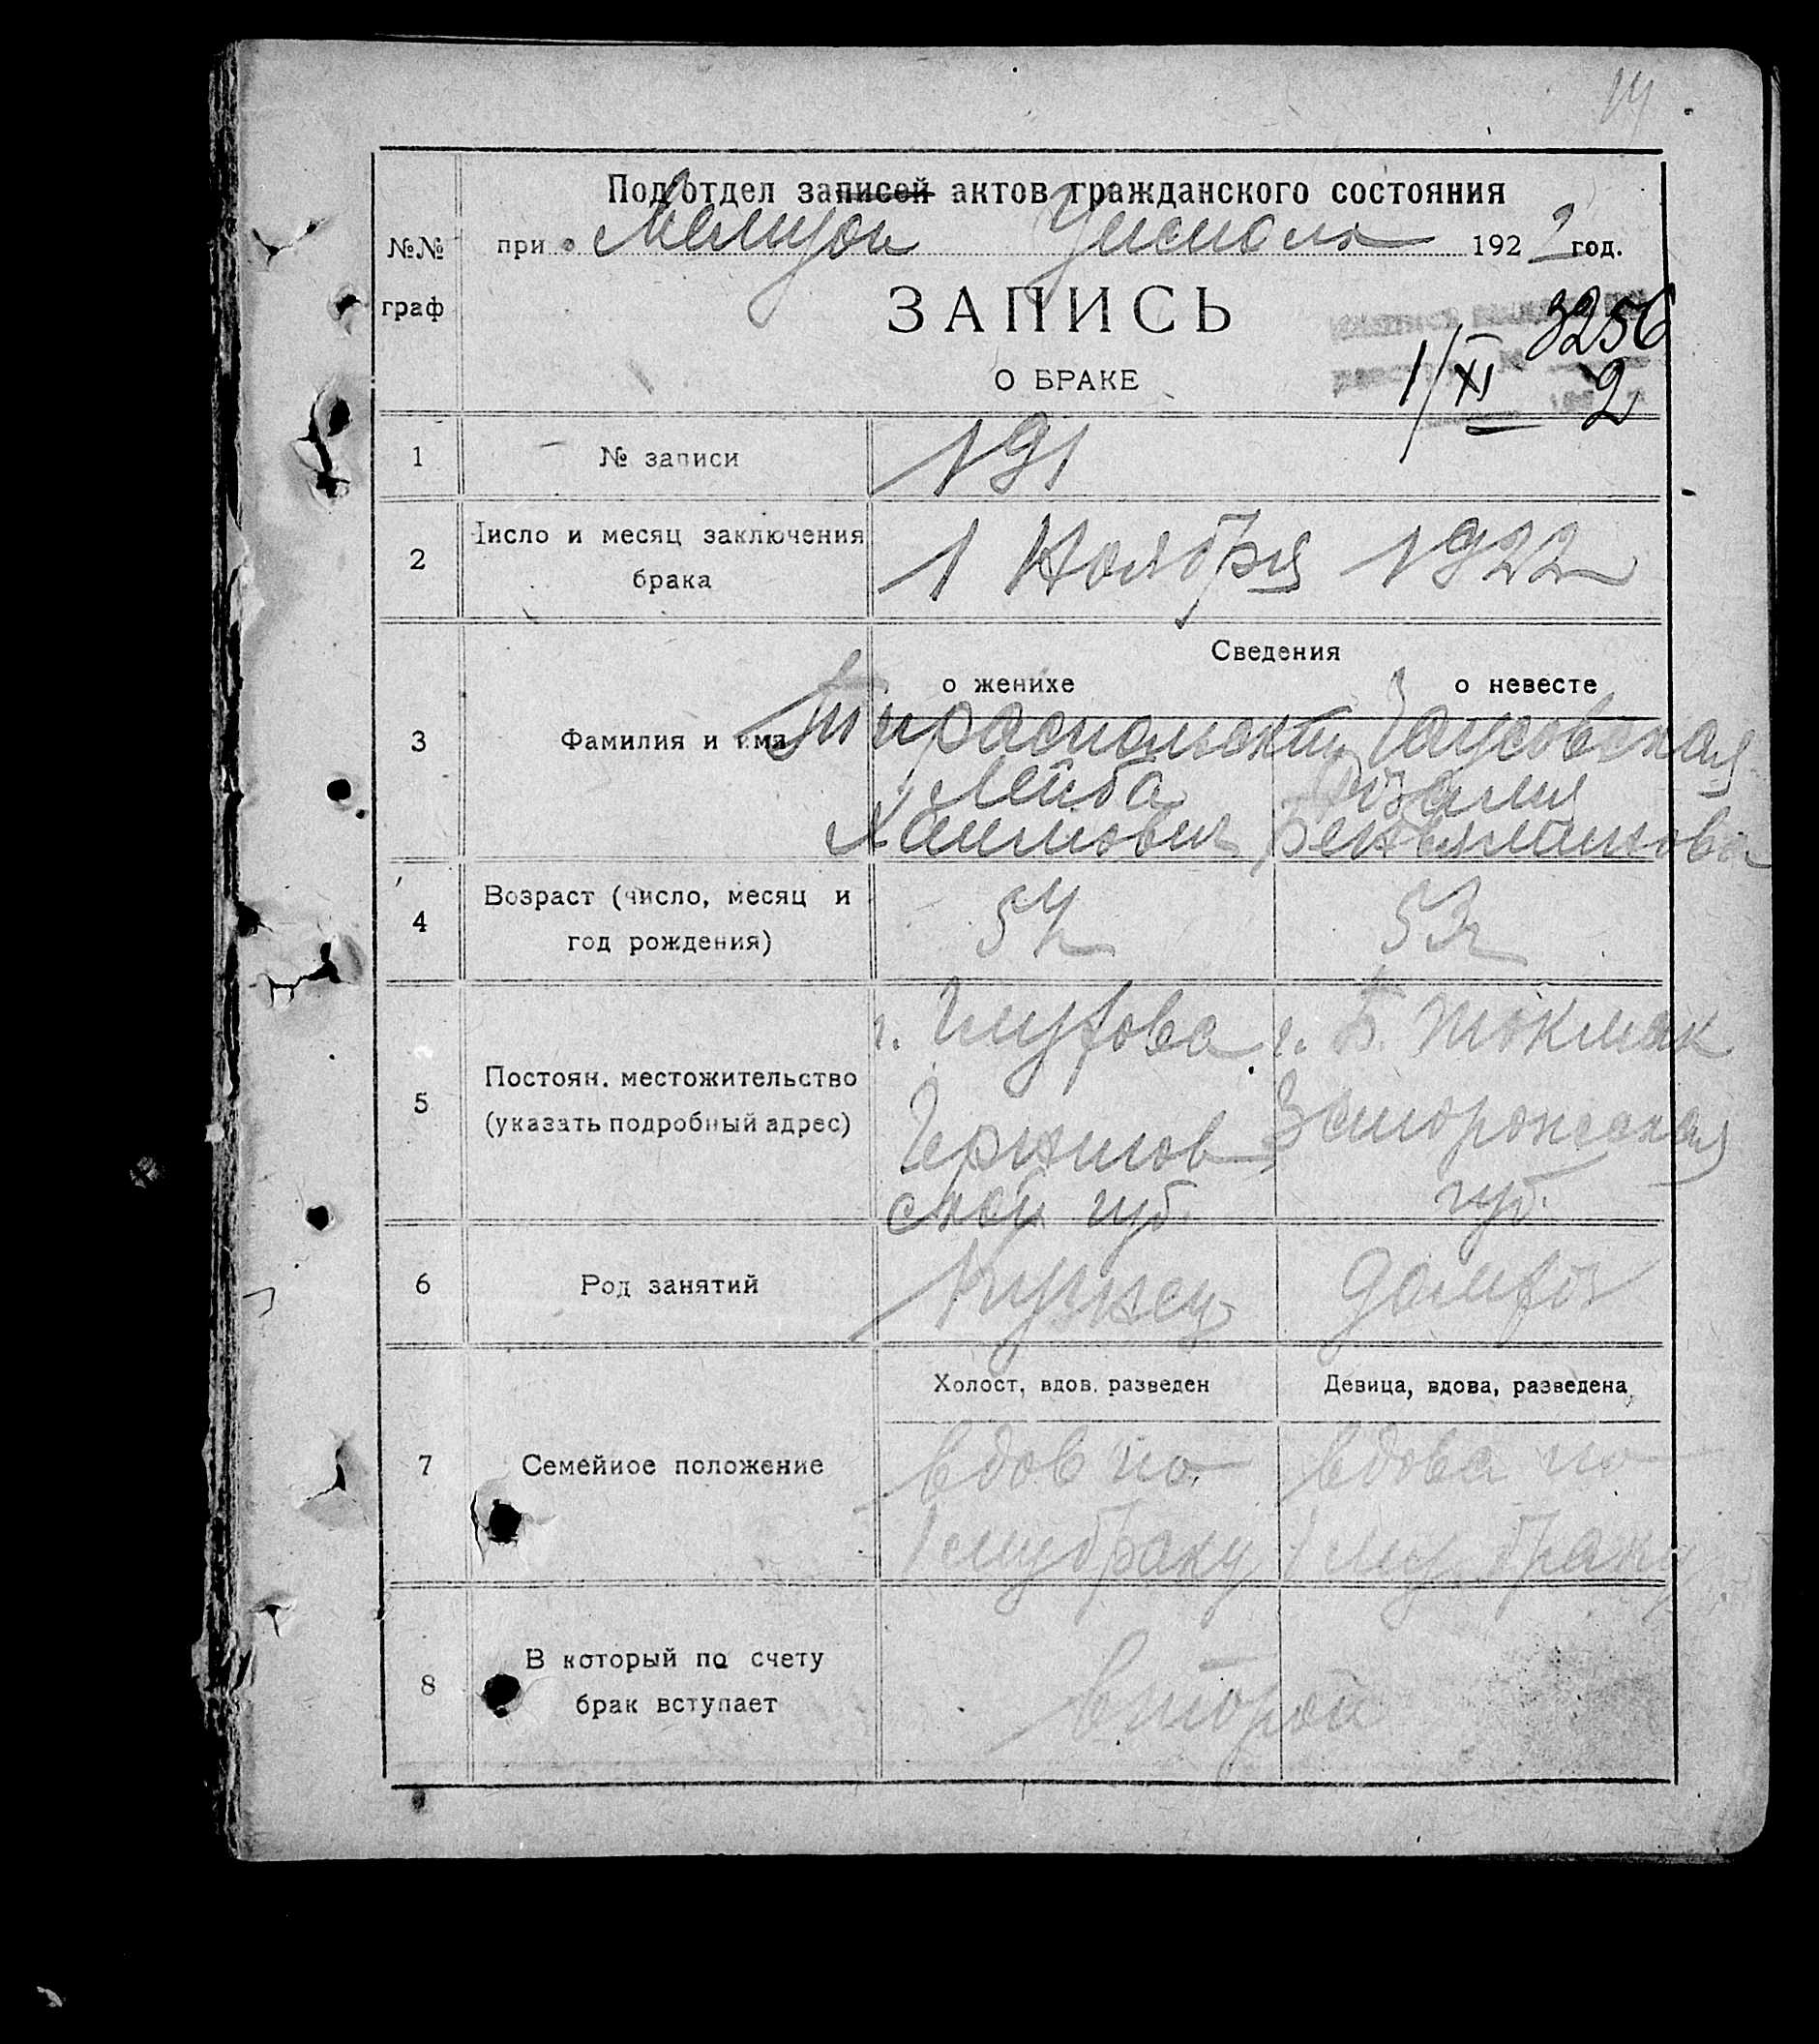 14
Подотдел записей актов гражданского состояния
при Мелитоп Уисполк 1922 год.
№№
граф
ЗАПИСЬ
3256
О БРАКЕ
1/XI 2
1 № записи 191
2 Число и месяц заключения
брака
1 Ноября 1922
Сведения
о женихе о невесте
3 Фамилия и имя Тираспольский Чаусовская
Лейба Розалия
Хаимович Беньяминова
4 Возраст (число, месяц и
год рождения)
54 53
5 Постоян. местожительство
(указать подробный адрес)
г. Глухова г. Б. Токмак
Чернигов Запорожская
ской губ. губ.
6 Род занятий Кузнец домхоз
Холост, вдов, разведен Девица, вдова, разведена
7 Семейное положение вдов по вдова по
1 му браку 1 му браку
8 В который по счету
брак вступает
второй